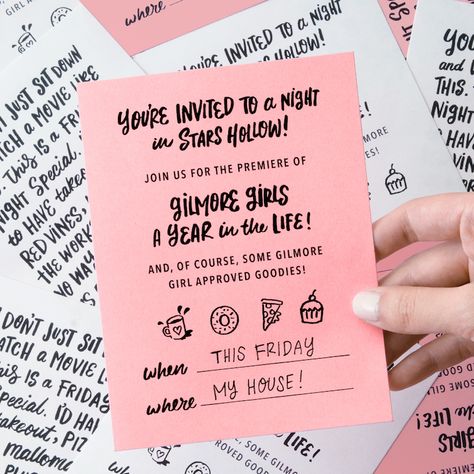 YOU'RE INVITED TO A NIGHT
in STARS HOLLOW!
JOIN US FOR THE PREMIERE OF
GILMORE GIRLS
A YEAR in the LIFE!
AND, OF COURSE, SOME GILMORE
GIRL APPROVED GOODIES!
when THIS FRIDAY
where MY HOUSE!
where
GIRL A
T JUST SIT DOWN
TCH A MOVIE LIKE
This is A FRIDA
NIGHT Special.
to HAVE takeo
RED VINES,
the WOR
NO WAY
DON'T JUST SIT
ATCH A MOVIE L
This is A FRIDAY
Special. I'D HA
takeout, PIZ
mallom
YOU'RE INVITED TO A NIGHT
in STARS HOLLOW!
PREMIERE OF
GIRLS
LIFE!
GILMORE
YOU
and
THIS.
SOME GILMORE
GOODIES!
the LIFE!
GIRLS